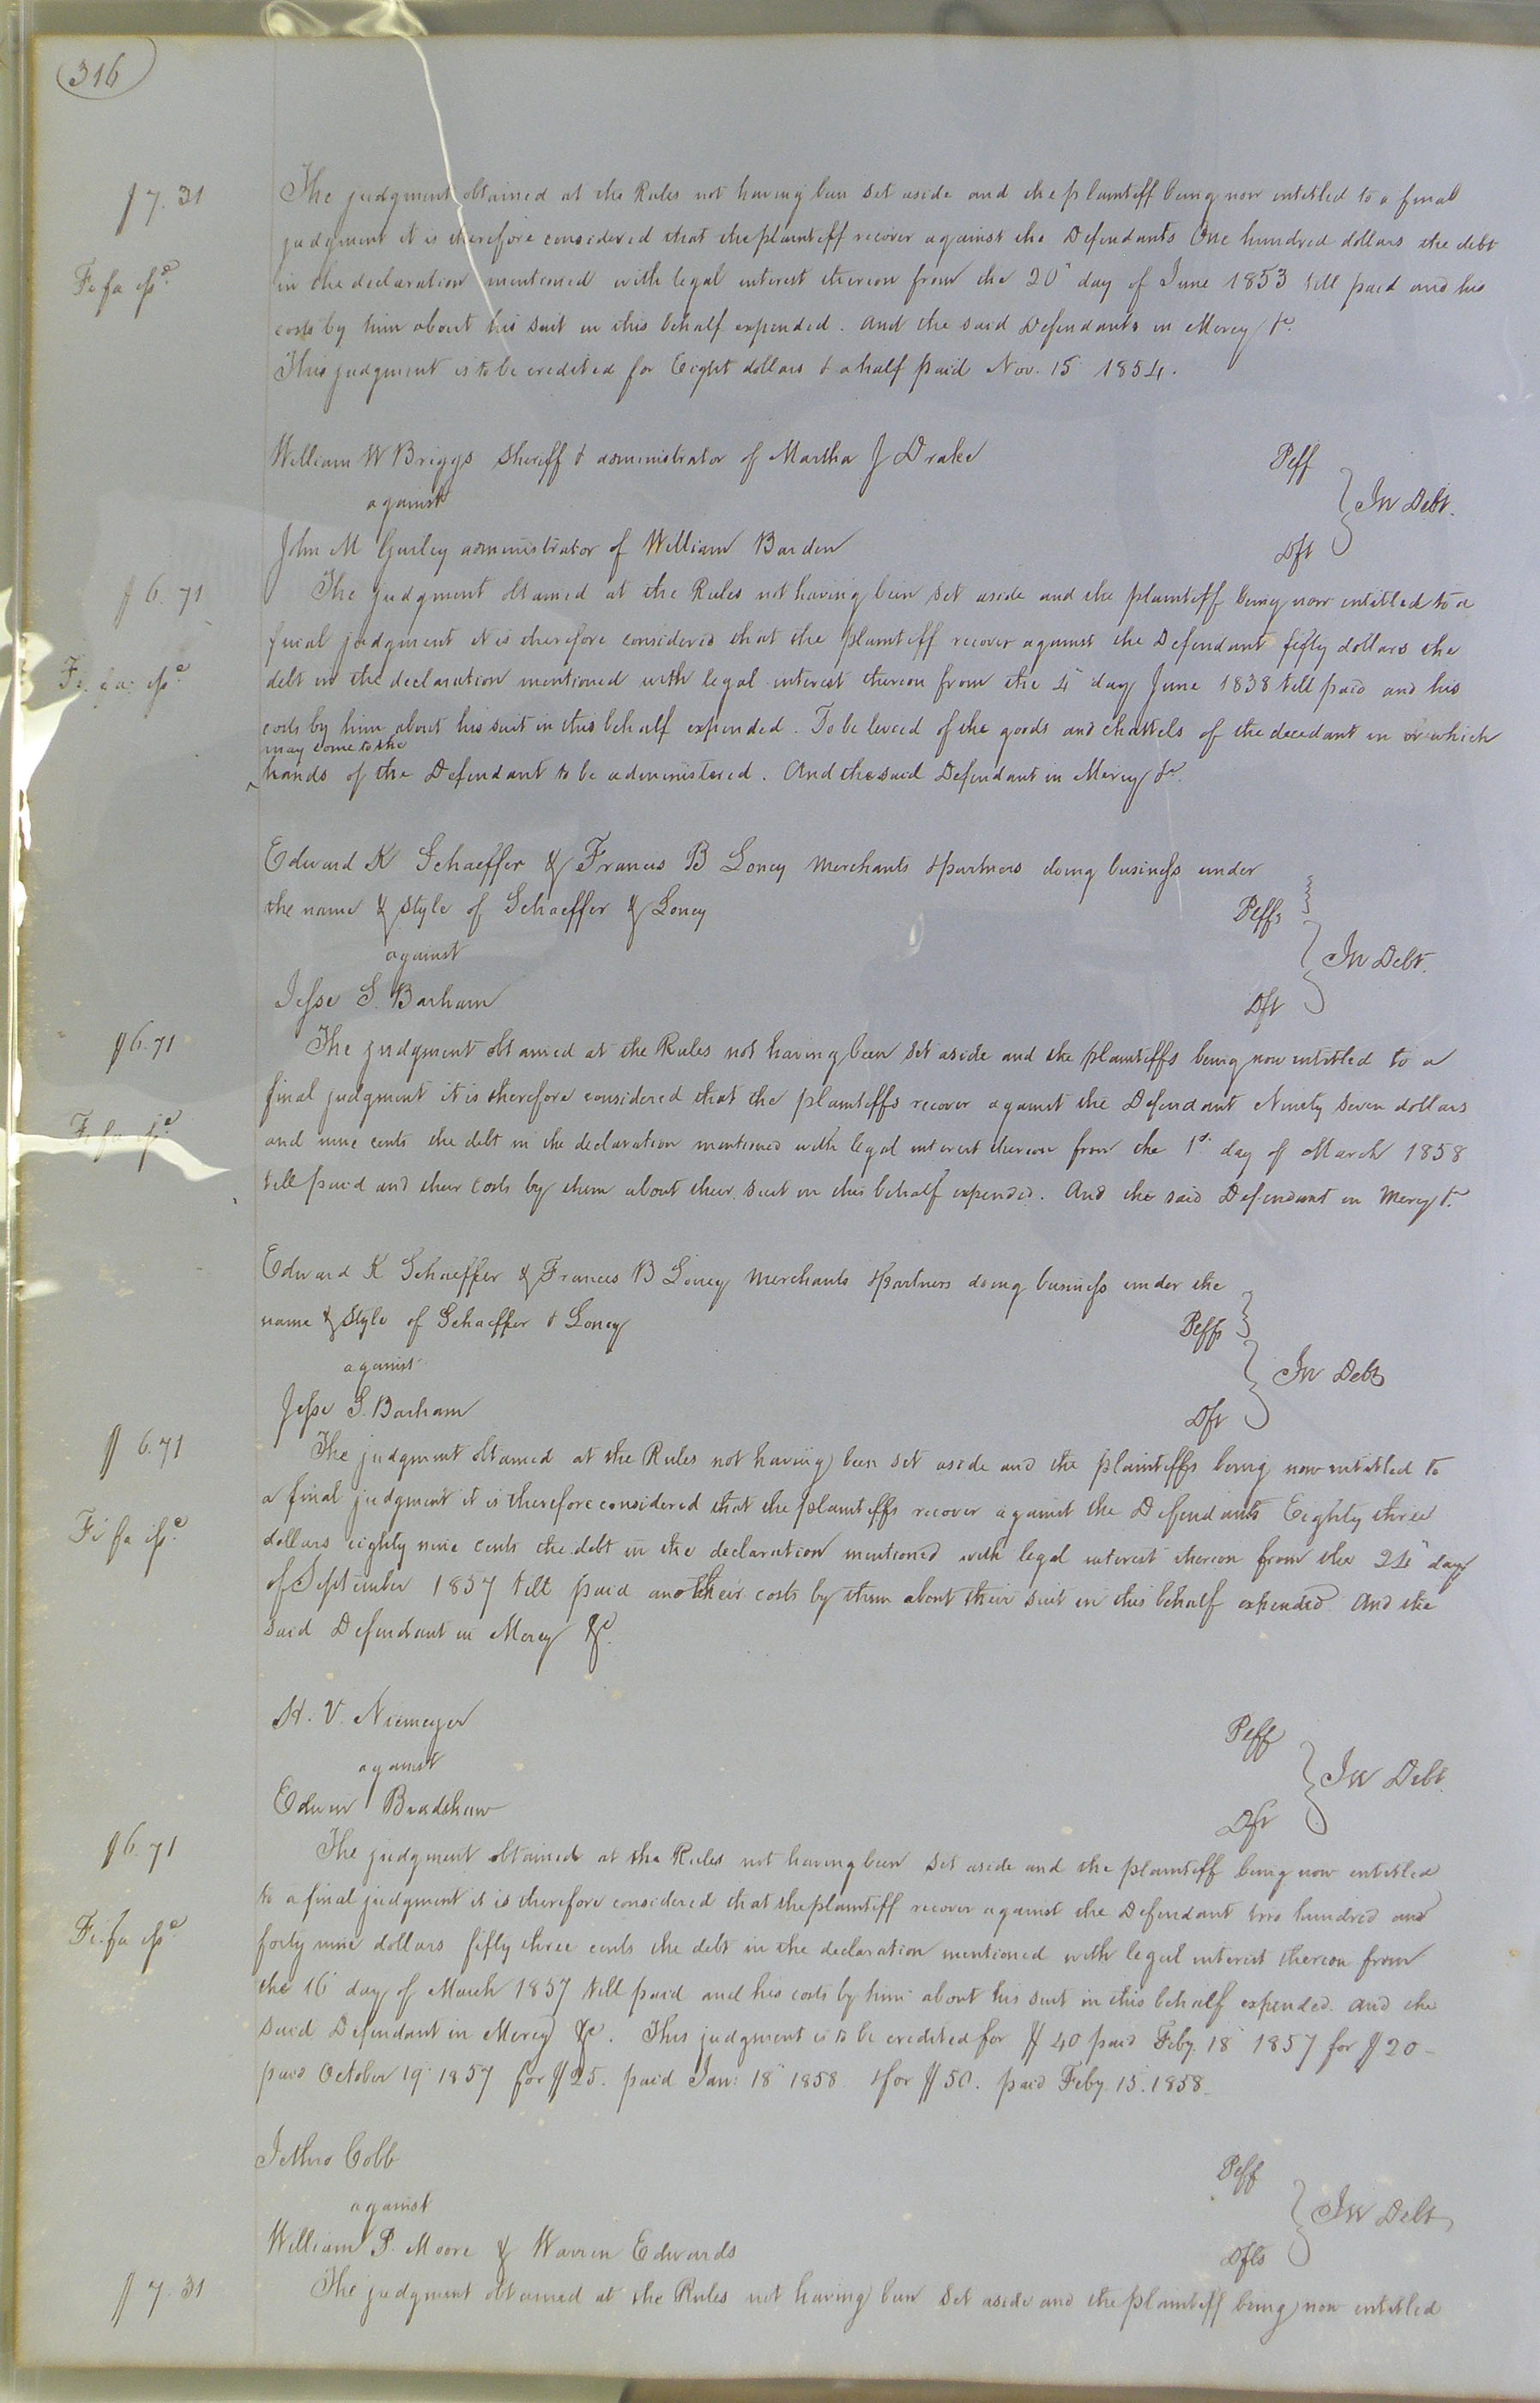 316
$7.31
The judgment obtained at the Rules not having been set aside and the plaintiff being now entitled to a final
judgment it is therefore considered that the plaintiff recover against the Defendants One hundred dollars the debt
Fi fa isd
in the declaration mentioned with legal interest thereon from the 20" day of June 1853 till paid and his
costs by him about his suit in this behalf expended. And the said Defendants in Mercy &c.
This judgment is to be credited for Eight dollars & a half paid Nov. 15 1854.
William W Briggs Sheriff & administrator of Martha J Drake Plff
against In Debt.
John M Gurley administrator of William Barden Dft
$6.71
The judgment obtained at the Rules not having been set aside and the plaintiff being now entitled to a
final judgment it is therefore considered that the plaintiff recover against the Defendant fifty dollars the
Fi. fa. isd
debt in the declaration mentioned with legal interest thereon from the 4" day June 1838 till paid and his
costs by him about his suit in this behalf expended. To be levied of the goods and chattels of the decedant in or which
may come to the
hands of the Defendant to be administered. And the said Defendant in Mercy &c.
Edward K Schaeffer & Francis B Loney Merchants & partners doing business under
the name & style of Schaeffer & Loney Plffs
against In Debt.
Jesse S. Barham Dft
$6.71
The judgment obtained at the Rules not having been set aside and the plaintiffs being now entitled to a
final judgment it is therefore considered that the plaintiffs recover against the Defendant Ninety seven dollars
Fi fa isd
and nine cents the debt in the declaration mentioned with legal interest thereon from the 1st day of March 1858
till paid and their costs by them about their suit in this behalf expended. And the said Defendant in Mercy &c.
Edward K Schaeffer & Francis B Loney Merchants & partners doing business under the
name & style of Schaeffer & Loney Plffs
against In Debt
Jesse S. Barham Dft
$6.71
The judgment obtained at the Rules not having been set aside and the plaintiffs being now entitled to
a final judgment it is therefore considered that the plaintiffs recover against the Defendants Eighty three
Fi fa isd
dollars eighty nine cents the debt in the declaration mentioned with legal interest thereon from the 24" day
of September 1857 till paid and their costs by them about their suit in this behalf expended. And the
said Defendant in Mercy &c.
H. V. Niemeyer Plff
against In Debt
Edwin Bradshaw Dft
$6.71
The judgment obtained at the Rules not having been set aside and the plaintiff being now entitled
to a final judgment it is therefore considered that the plaintiff recover against the Defendant two hundred and
Fi. fa isd
forty nine dollars fifty three cents the debt in the declaration mentioned with legal interest thereon from
the 16 day of March 1857 till paid and his costs by him about his suit in this behalf expended. And the
said Defendant in Mercy &c. This judgment is to be credited for $40 paid Feby. 18 1857 for $20-
paid October 19 1857 for $25. paid Jan: 18" 1858. & for $50. paid Feby. 15. 1858.
Jethro Cobb Plff
against In Debt
William P. Moore & Warren Edwards Dfts
$7.31
The judgment obtained at the Rules not having been set aside and the plaintiff being now entitled